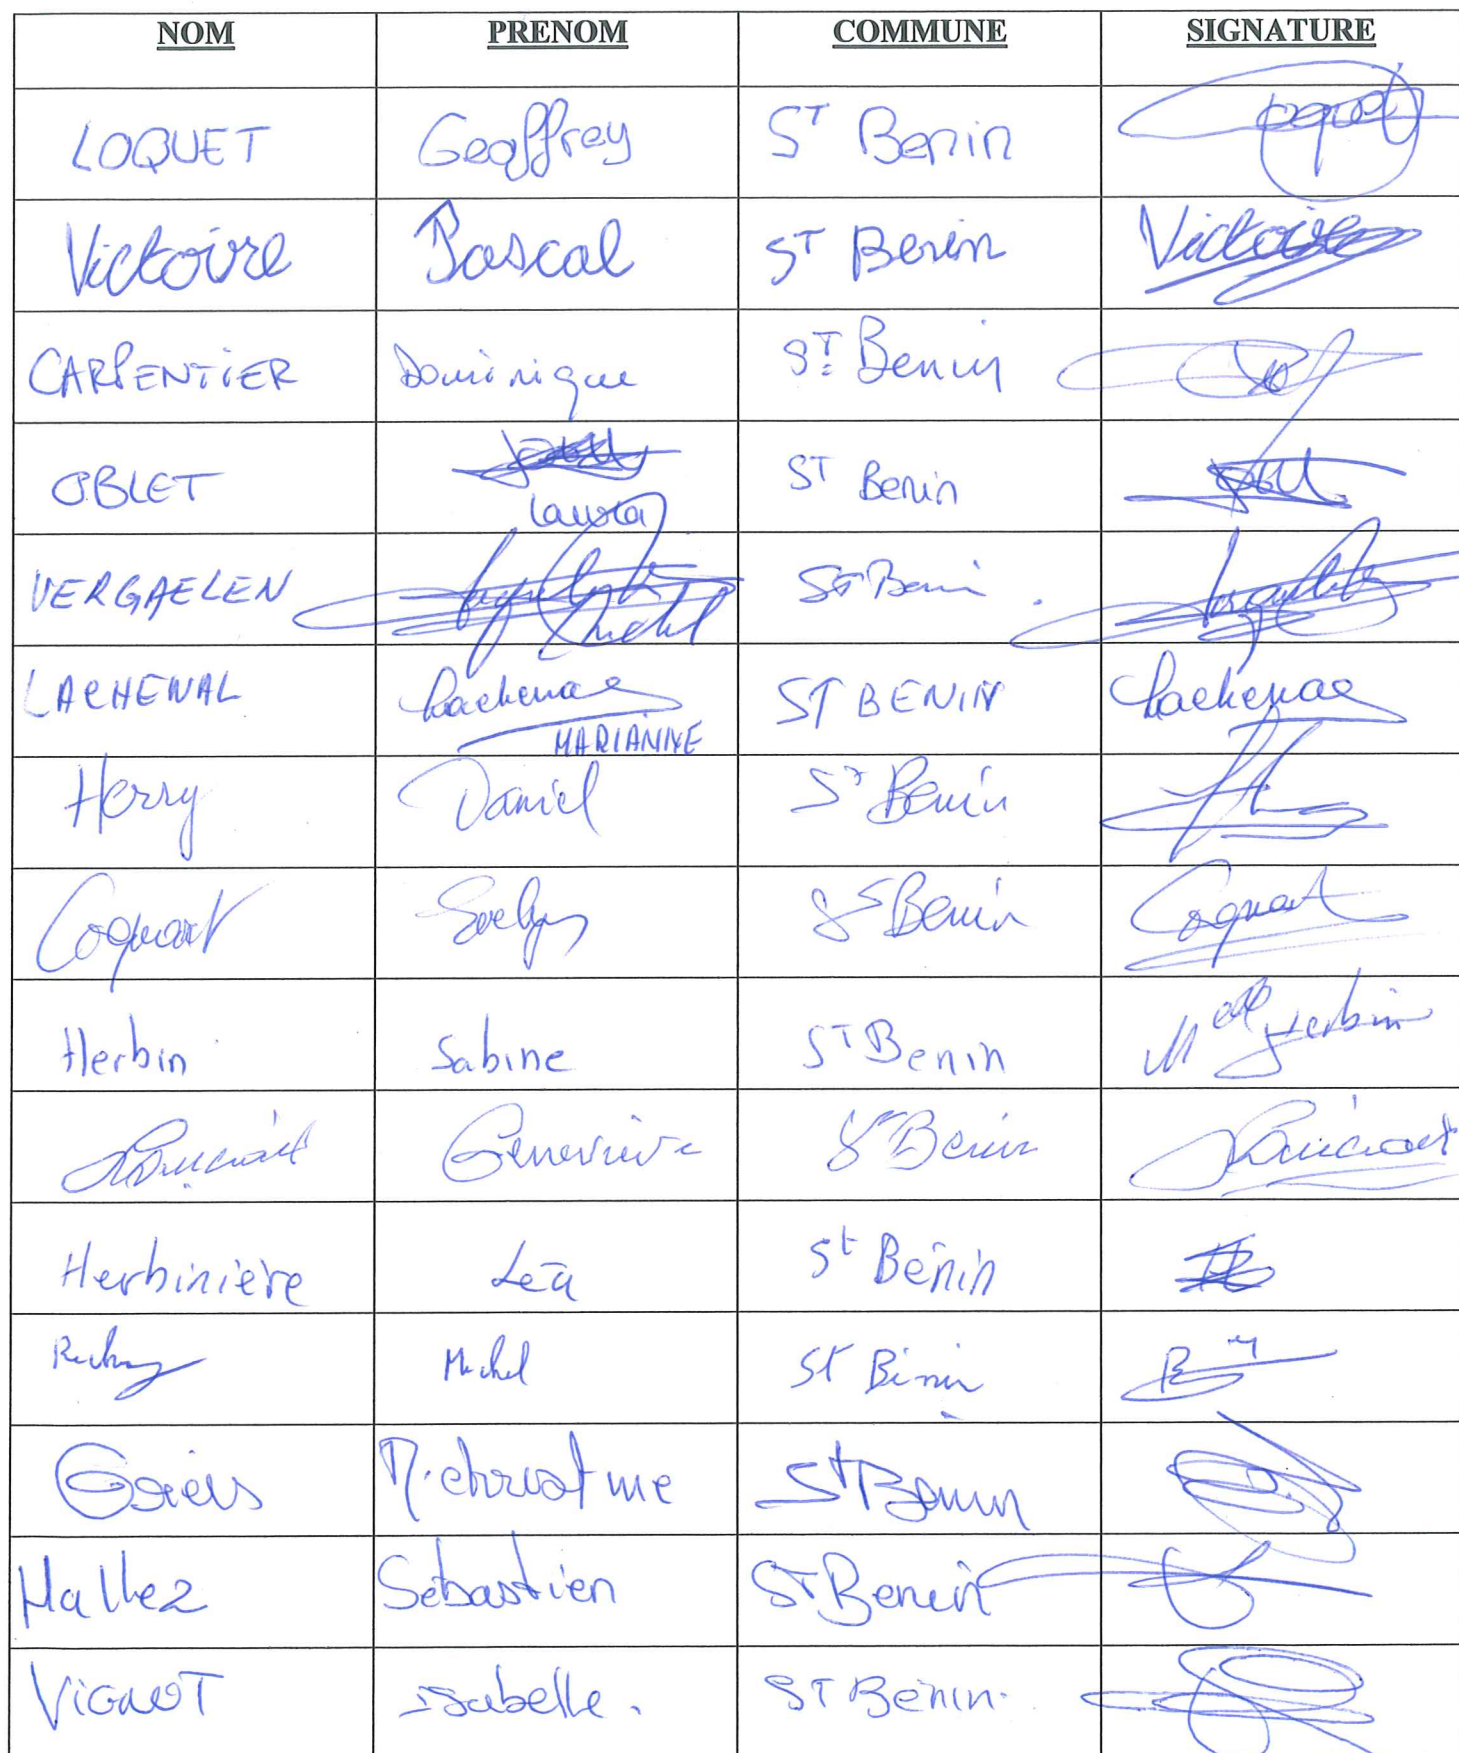 NOM PRENOM COMMUNE SIGNATURE
LOQUET Geoffrey ST Benin
Victoire Pascal ST Benin Victoire
CARPENTIER Dominique ST Benin
OBLET Laura ST Benin
VERGAELEN Michel ST Benin
LACHENAL Lachenal MARIANNE ST BENIN Lachenal
Herry Daniel St Benin
Coquart Evelyne St Benin Coquart
Herbin Sabine ST Benin Melle Herbin
Geneviève St Benin
Herbinière Léa St Benin
Michel St Benin
M. christine St Benin
Mallez Sébastien ST Benin
VIGNOT isabelle. ST Benin.